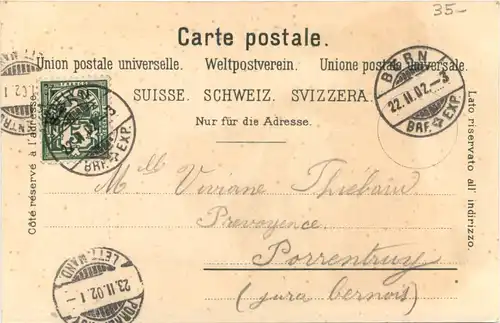 35-
Carte postale.
Union postale universelle. Weltpostverein. Unione postale universale.
SUISSE. SCHWEIZ. SVIZZERA.
Nur für die Adresse.
Côté réservé à l'adresse.
Lato riservato all' indirizzo.
BERN
22.II.02.-3
BRF. EXP.
BRF. EXP.
Mlle Viviane Thiébaud
Prevoyence
Porrentruy
(jura bernois)
LETT MAND
23.II.02.1-